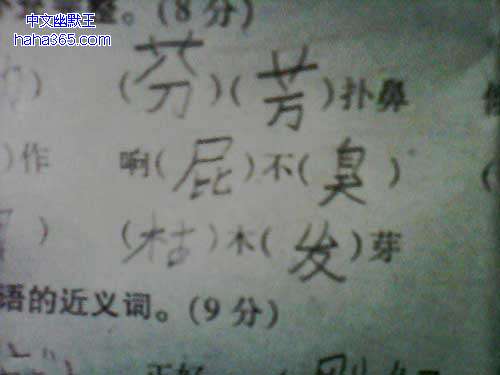 中文幽默王
haha365.com
整。(8分)
) (芬)(芳)扑鼻
)作 响(屁)不(臭)
) (枯)木(发)芽
语的近义词。(9分)
正好